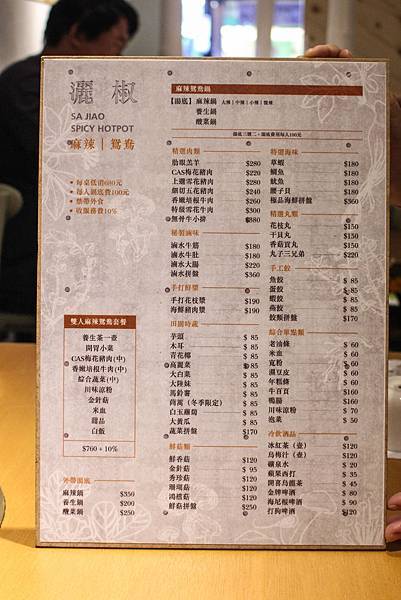 灑椒
SA JIAO
SPICY HOTPOT
麻辣｜鴛鴦
• 每桌低消680元
• 每人鍋底費100元
• 禁帶外食
• 收服務費10%
雙人麻辣鴛鴦套餐
養生茶一壺
開胃小菜
CAS梅花豬肉(中)
香嫩培根牛肉(中)
綜合蔬菜(中)
川味涼粉
金針菇
米血
甜品
白飯
$760 + 10%
外帶湯底
麻辣鍋 $350
養生鍋 $200
酸菜鍋 $250
麻辣鴛鴦鍋
【湯底】麻辣鍋 大辣 | 中辣 | 小辣 | 微辣
養生鍋
酸菜鍋
湯底三選二，湯底費用每人100元
精選肉類
肋眼羔羊 $280
CAS梅花豬肉 $220
上選雪花豬肉 $280
細切五花豬肉 $220
香嫩培根牛肉 $260
特級雪花牛肉 $300
無骨牛小排 $380
秘製滷味
滷水牛筋 $180
滷水牛肚 $180
滷水大腸 $220
滷水拼盤 $360
手打鮮漿
手打花枝漿 $190
海鮮豬肉漿 $190
田園時蔬
芋頭 $ 85
木耳 $ 85
青花椰 $ 85
高麗菜 $ 85
大白菜 $ 85
大陸妹 $ 85
馬鈴薯 $ 85
茼萵（冬季限定） $ 85
白玉蘿蔔 $ 85
大黃瓜 $ 85
蔬菜拼盤 $170
鮮菇類
鮮香菇 $120
金針菇 $ 95
秀珍菇 $120
珊瑚菇 $120
鴻禧菇 $120
鮮菇拼盤 $250
特選海味
草蝦 $180
鯛魚 $180
魷魚 $180
腰子貝 $180
極品海鮮拼盤 $360
精選丸類
花枝丸 $150
干貝丸 $150
香菇貢丸 $150
丸子三兄弟 $220
手工餃
魚餃 $ 85
蛋餃 $ 85
蝦餃 $ 85
燕餃 $ 85
餃類拼盤 $170
綜合單點類
老油條 $ 60
米血 $ 60
寬粉 $ 60
凍豆皮 $ 60
年糕條 $ 60
牛百頁 $160
鴨腸 $160
川味涼粉 $ 70
泡菜 $ 50
冷飲酒品
冰紅茶（壺） $120
烏梅汁（壺） $120
礦泉水 $ 20
蘋果西打 $ 35
開喜烏龍茶 $ 45
金牌啤酒 $ 80
海尼根啤酒 $ 90
打狗啤酒 $120